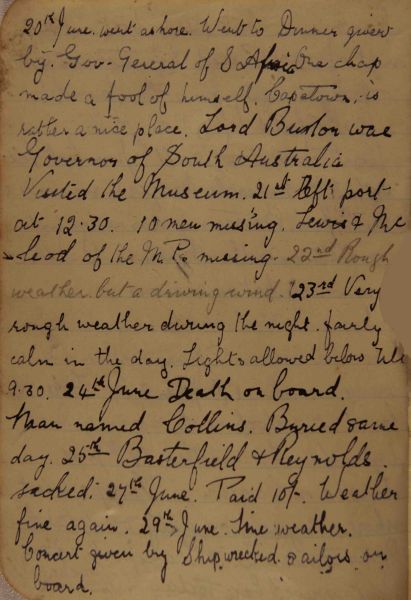 20th June. went ashore. Went to Dinner given
by. Gov- General of S Africa One chap
made a fool of himself. Capetown. is
rather a nice place. Lord Buxton was
Governor of South Australia
Visited the Museum. 21st Left port
at 12.30. 10 men missing. Lewis & Mc
Leod of the M.P. missing. 22nd Rough
weather. but a driving wind. 23rd Very
rough weather during the night. fairly
calm in the day. Lights allowed below till
9.30. 24th June Death on board.
Man named Collins. Buried same
day. 25th Basterfield & Reynolds.
sacked. 27th June. Paid 10/-. Weather
fine again. 29th June. Fine weather.
Concert given by Ship wrecked sailors on
board.